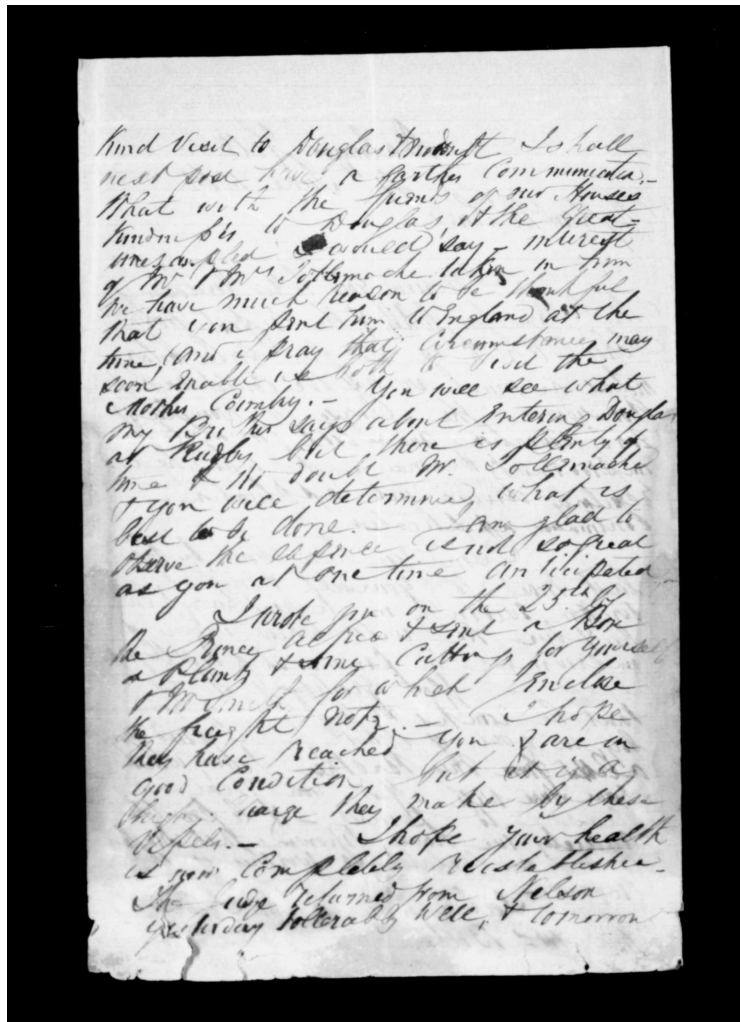 Kind Visit to Douglas & I shall
next post have a farther Communication.—
What with the friends of our Houses
Kindness to Douglas & the great—
I would say — interest
of Mr & Mrs Tollemache taken in him
We have much reason to be thankful
that you sent him to England at the
time, and I pray that Circumstances may
soon enable us both to visit the
Mother Country.— You will see what
my Brother says about Entering Douglas
at Rugby but there is plenty of
time & no doubt Mr. Tollemache
& you will determine what is
best to be done. — I am glad to
observe the expence is not so great
as you at one time anticipated.—
I wrote you on the 25th by
the Prince Alfred & sent a Box
of Plants & some Cuttings for yourself
& for which I enclose
the freight note.— I hope
they have reached you & are in
good Condition, but it is a
charge they make by these
Vessels.— I hope your health
is now Completely reestablished.
The returned from Nelson
yesterday tollerably well, & tomorrow